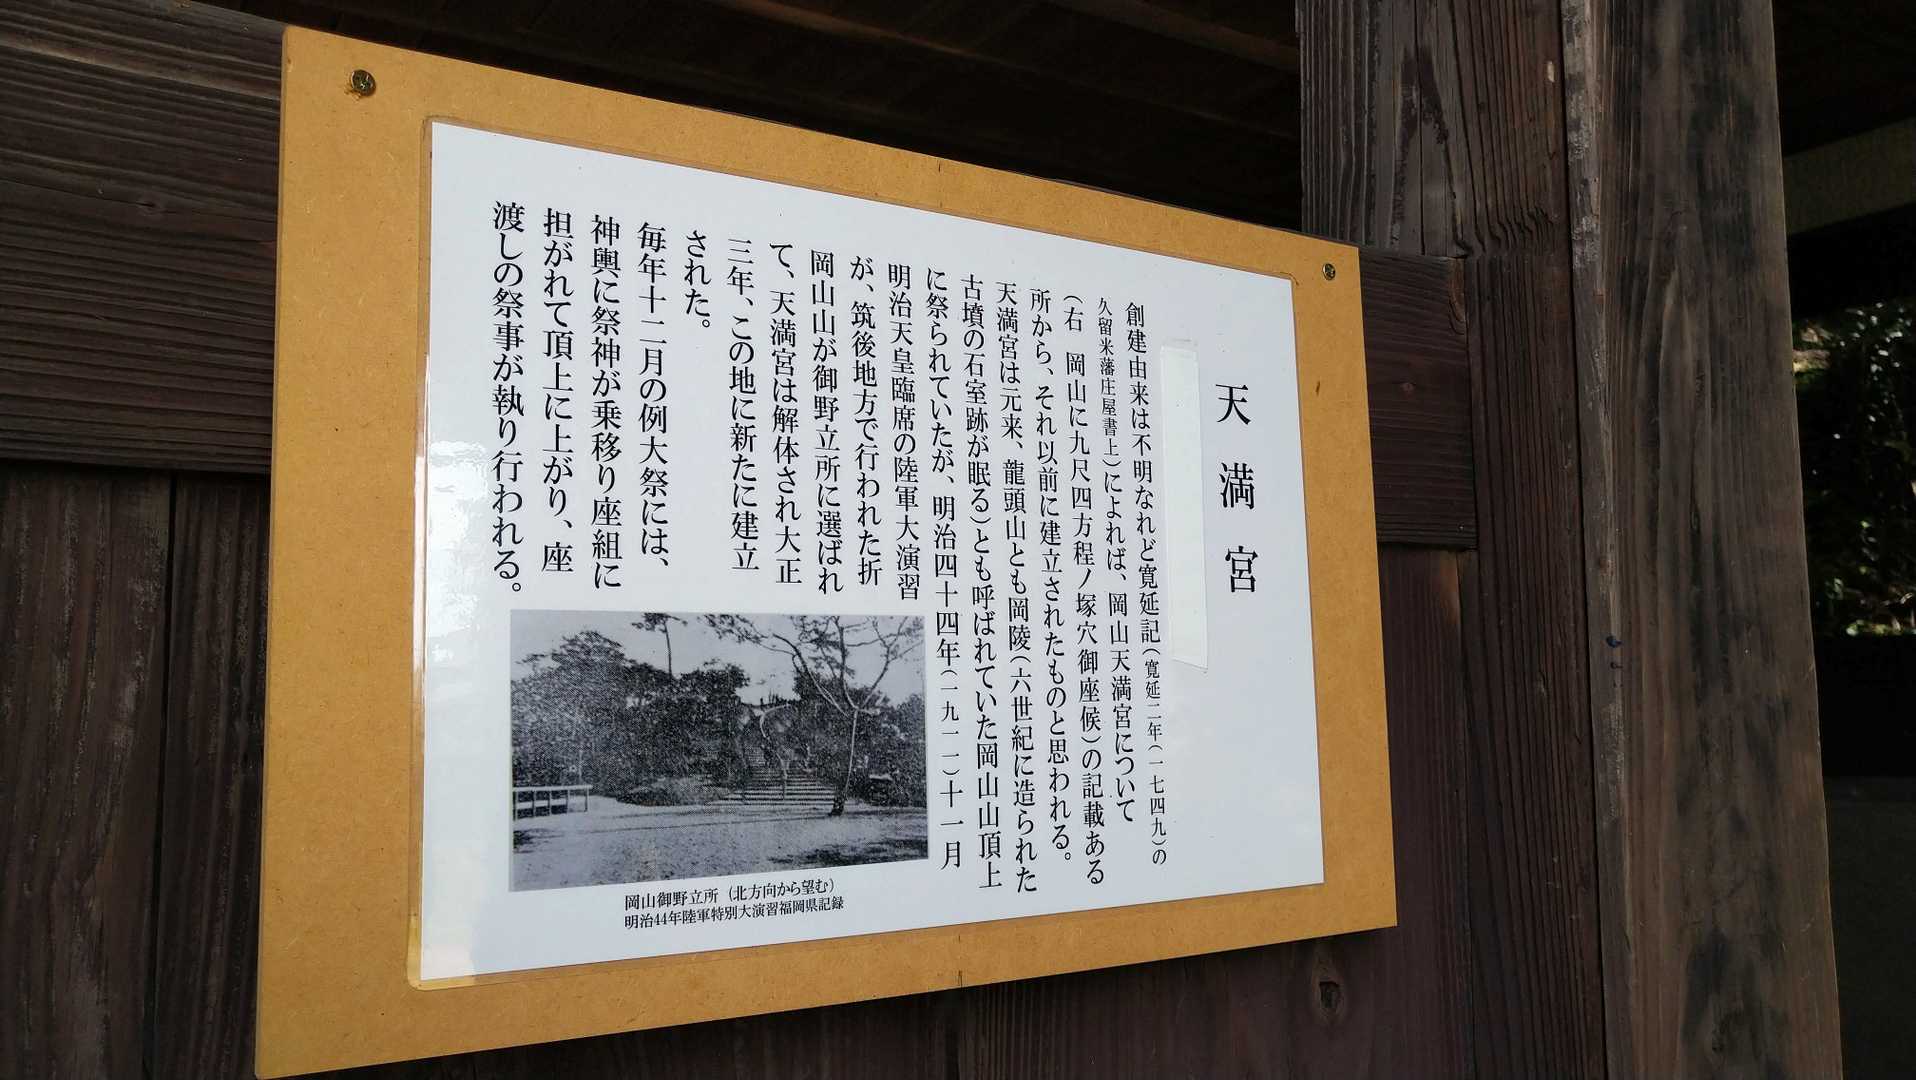 天満宮
創建由来は不明なれど寛延記(寛延二年(一七四九)の
久留米藩庄屋書上)によれば、岡山天満宮について
(右　岡山に九尺四方程ノ塚穴御座候)の記載ある
所から、それ以前に建立されたものと思われる。
天満宮は元来、龍頭山とも岡陵(六世紀に造られた
古墳の石室跡が眠る)とも呼ばれていた岡山山頂上
に祭られていたが、明治四十四年(一九一一)十一月
明治天皇臨席の陸軍大演習
が、筑後地方で行われた折
岡山山が御野立所に選ばれ
て、天満宮は解体され大正
三年、この地に新たに建立
された。
毎年十二月の例大祭には、
神輿に祭神が乗移り座組に
担がれて頂上に上がり、座
渡しの祭事が執り行われる。
岡山御野立所（北方向から望む）
明治44年陸軍特別大演習福岡県記録